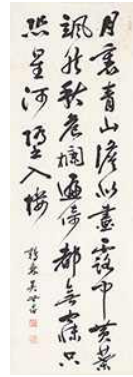 月裏青山澹似畫露中黃葉
颯然秋危欄遍倚都無寐只
恐星河墮入樓